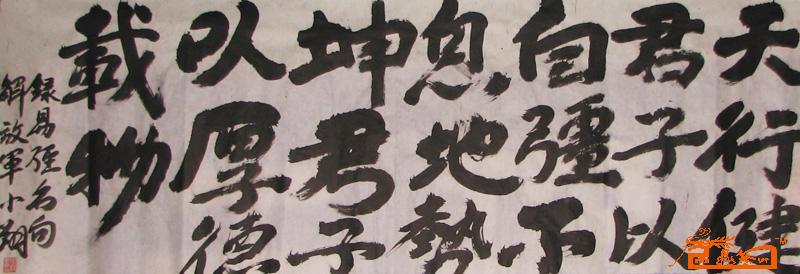 天行健
君子以
自彊不
息地勢
坤君子
以厚德
載物
錄易經名句
解放軍小翔